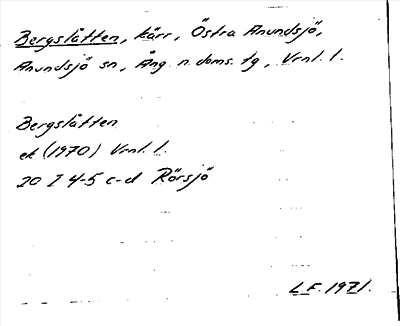 Bergslåtten, kärr, Östra Anundsjö,
Anundsjö sn, Ång. n. doms. tg, Vrnl. l.
Bergslåtten
ek (1970) Vrnl. l.
20 I 4-5 c-d Rörsjö
L.F. 1971.